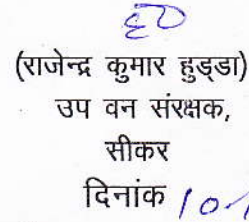 (राजेन्द्र कुमार हुड्डा)
उप वन संरक्षक,
सीकर
दिनांक 10